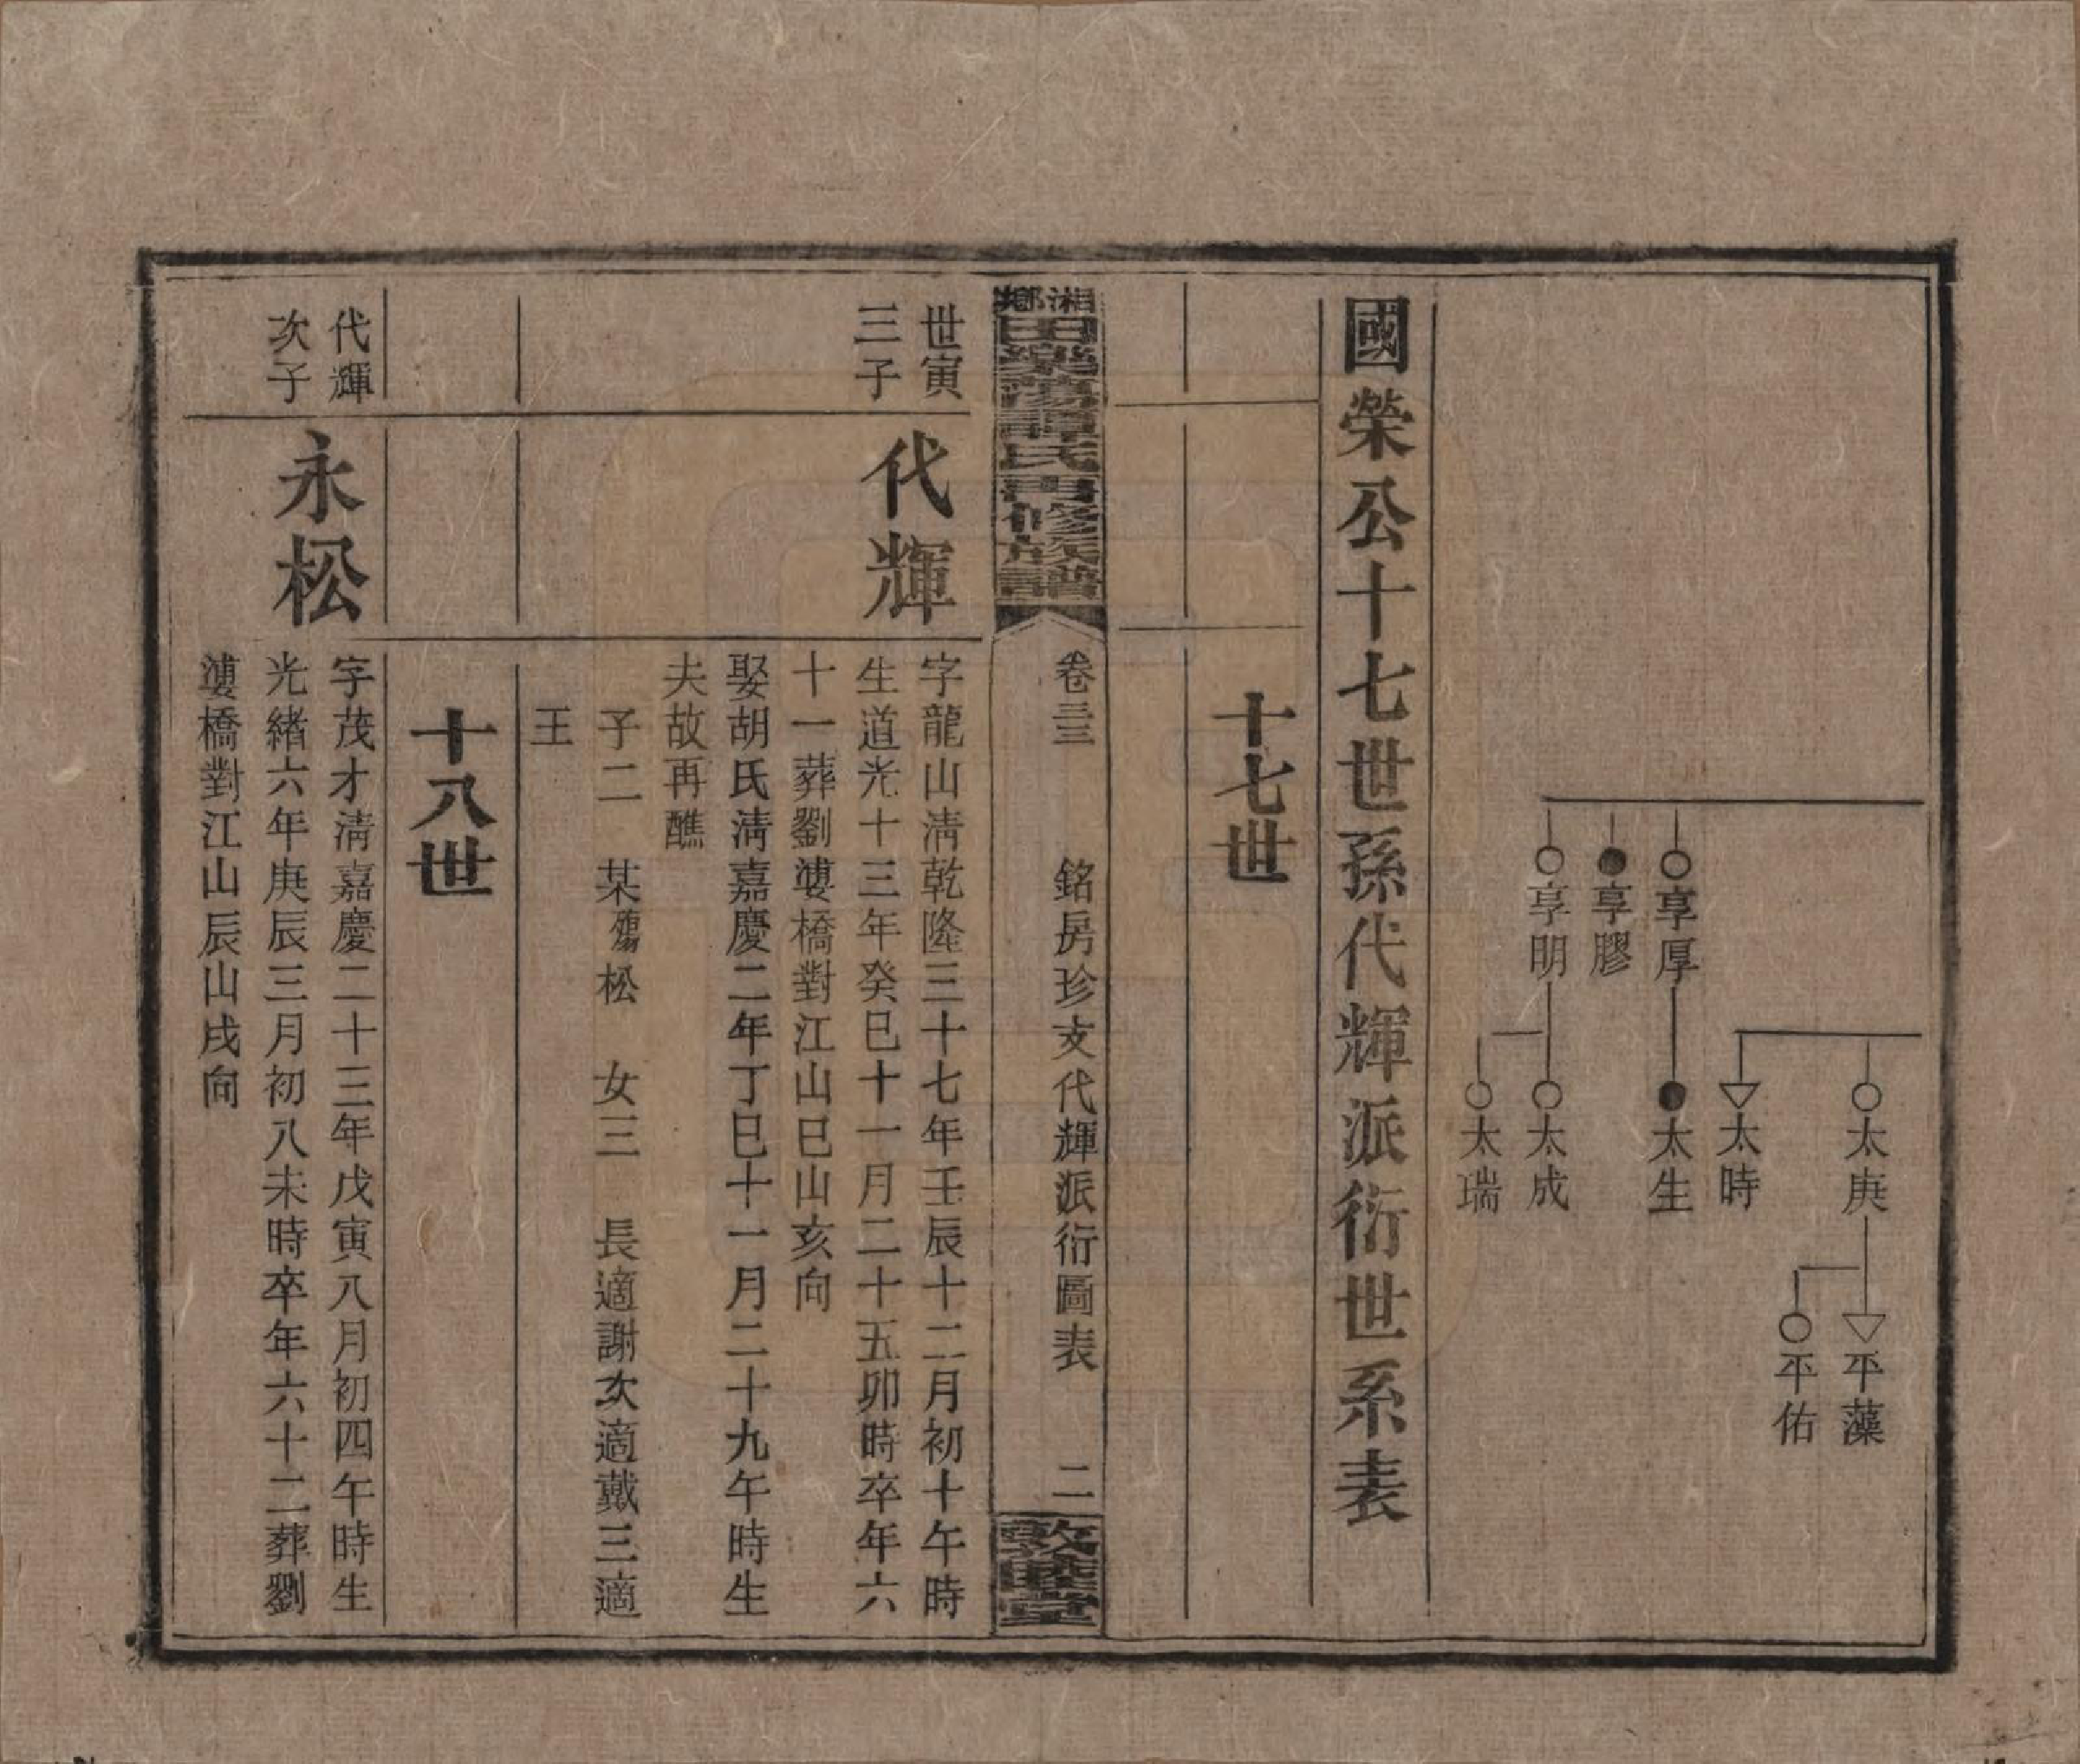 享厚
享膠
享明
太庚
太時
太生
太成
太瑞
平藻
平佑
國榮公十七世孫代輝派衍世系表
十七世
湘鄉
田樂蕩譚氏再修族譜
卷三三
銘房珍支代輝派衍圖表
二
敦睦堂
世寅
三子
代輝
字龍山淸乾隆三十七年壬辰十二月初十午時
生道光十三年癸巳十一月二十五卯時卒年六
十一葬劉漊橋對江山巳山亥向
娶胡氏淸嘉慶二年丁巳十一月二十九午時生
夫故再醮
子二 某殤松 女三 長適謝次適戴三適
王
十八世
代輝
次子
永松
字茂才淸嘉慶二十三年戊寅八月初四午時生
光緒六年庚辰三月初八未時卒年六十二葬劉
漊橋對江山辰山戌向